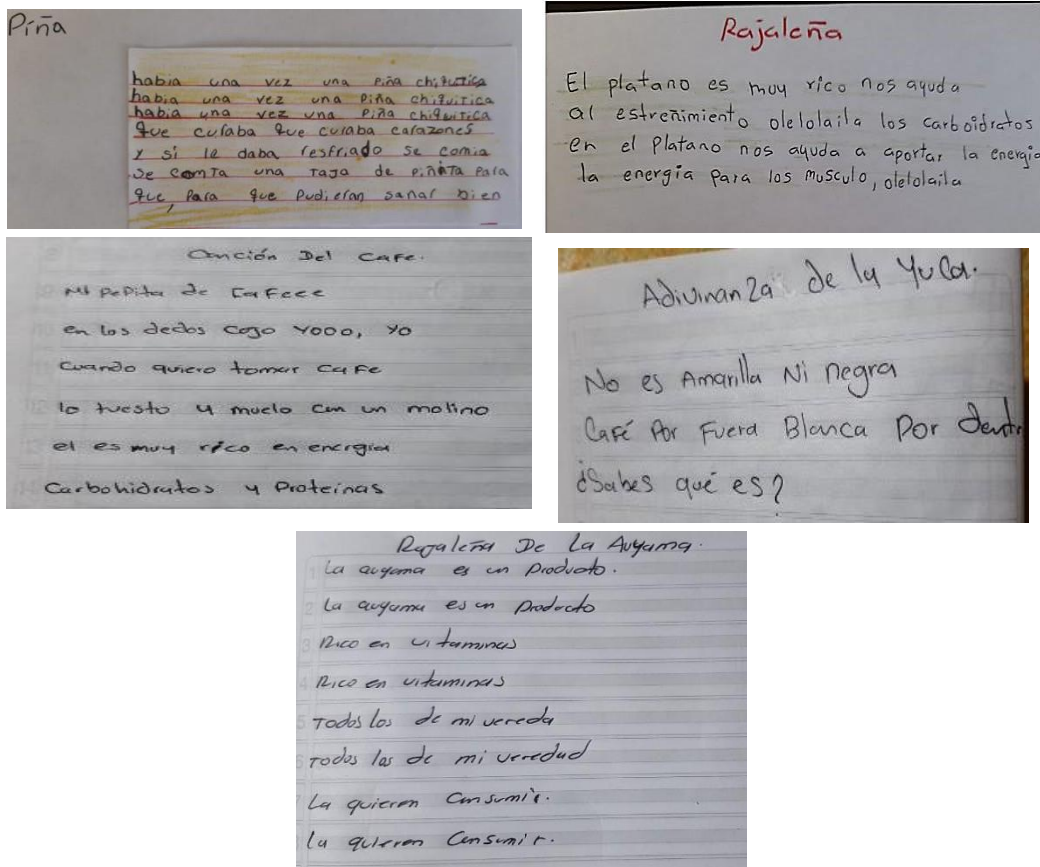 Piña
habia una vez una piña chiquitica
habia una vez una piña chiquitica
habia una vez una piña chiquitica
que curaba que curaba corazones
y si le daba resfriado se comia
se comía una taja de piñita para
que, para que pudieran sanar bien
Rajaleña
El platano es muy rico nos ayuda
al estreñimiento olelolaila los carboidratos
en el Platano nos ayuda a aportar la energia
la energia para los musculo, olelolaila
Canción Del Cafe.
Mi Pepita de Cafeee
en los dedos cojo Yooo, yo
Cuando quiero tomar Cafe
lo tuesto y muelo con un molino
el es muy rico en energia
Carbohidratos y Proteinas
Adivinanza de la yuca.
No es Amarilla Ni negra
Café Por Fuera Blanca Por dentro
¿Sabes qué es?
Rajaleña De La Auyama.
La auyama es un Producto.
La auyama es un Producto
Rico en vitaminas
Rico en vitaminas
Todos los de mi vereda
Todos los de mi veredad
La quieren Consumir.
La quieren Consumir.